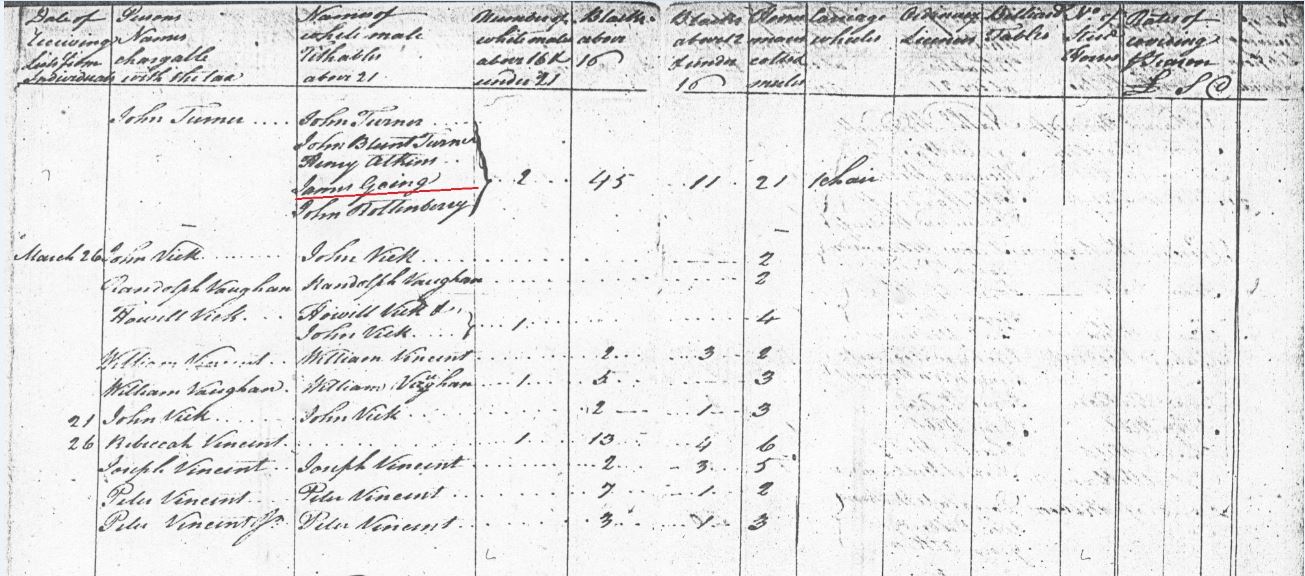 Date of Persons Names of Number of Blacks Blacks Horses Carriage Ordinary Billiard No. of Rates of
receiving Names white male white males above above 12 mares wheels Licenses Tables Stud covering
Lists from chargable Tithables above 16 & 16 & under colts & Horses Season
Individuals with the tax above 21 under 21 16 mules £ S D
John Turner John Turner
John Blunt Turner
Henry Atkins
James Going 2 45 11 21 1 chair
John Rottenberry
March 26 John Vick John Vick 2
Randolph Vaughan Randolph Vaughan 2
Howell Vick Howell Vick & 4
John Vick 1
William Vincent William Vincent 2 3 2
William Vaughan William Vaughan 1 5 3
21 John Vick John Vick 2 1 3
26 Rebeccah Vincent 1 13 4 6
Joseph Vincent Joseph Vincent 2 3 5
Peter Vincent Peter Vincent 7 1 2
Peter Vincent Jr Peter Vincent 3 1 3